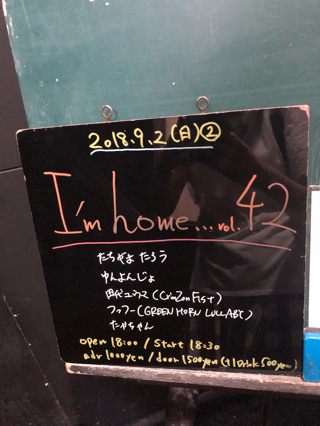 2018.9.2(日)②
I'm home...vol.42
たちやま たろう
ゆんよんじょ
田代ユウス(CrimZon FIST)
フッフー(GREEN HORN LULLABY)
たかちゃん
open 18:00 / Start 18:30
adv 1000yen / door 1500yen (+1 Drink 500yen)